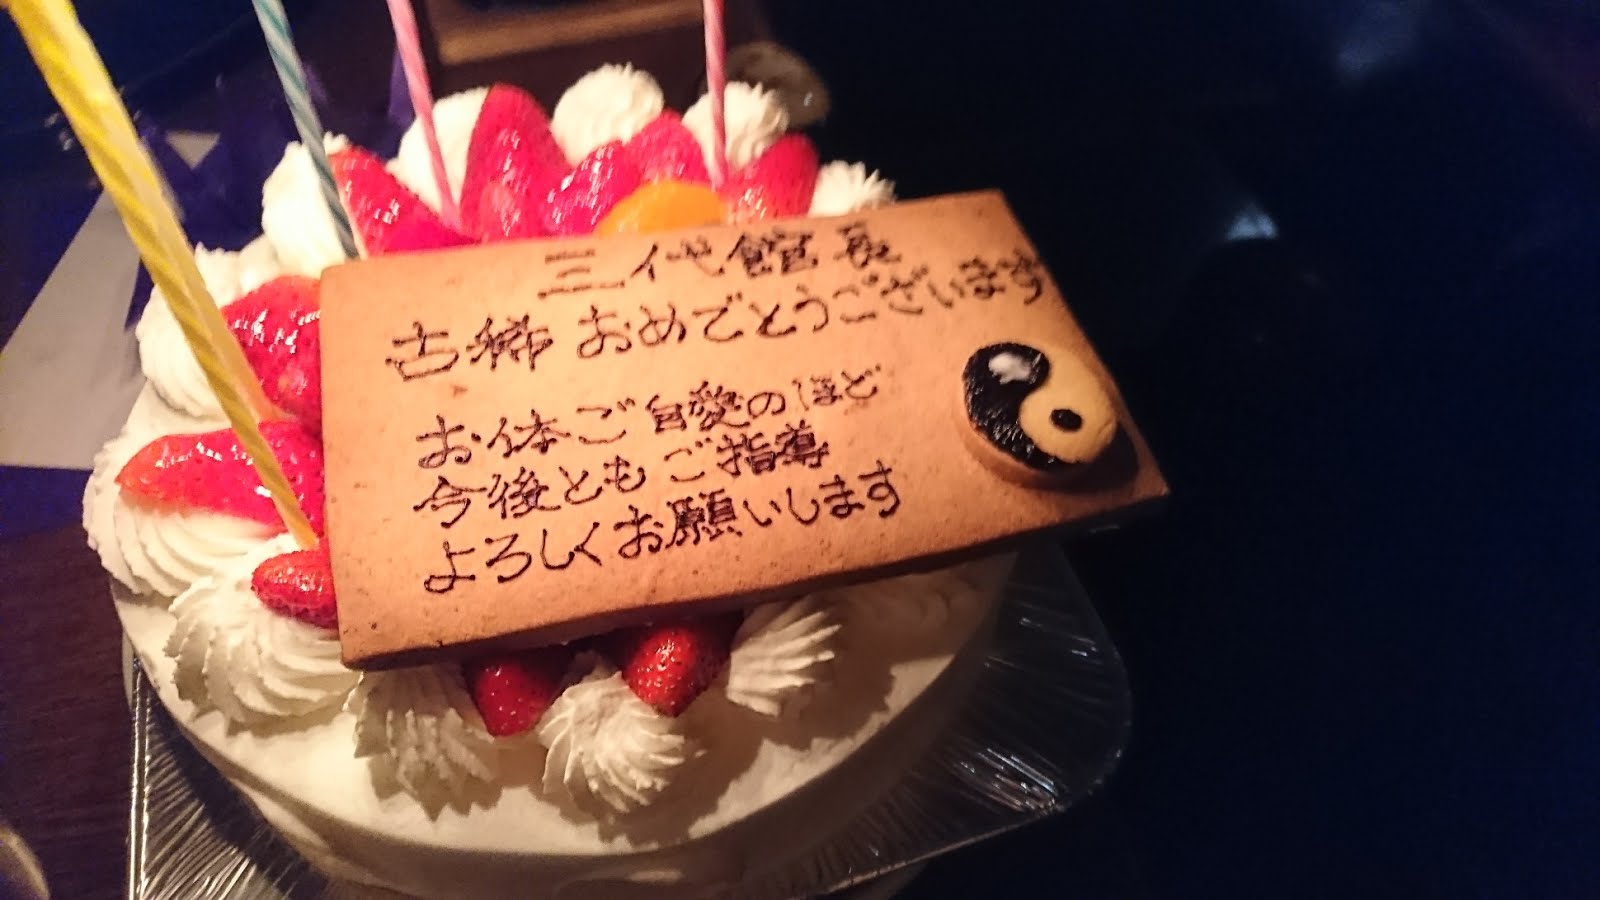 三代館長
古稀 おめでとうございます
お体ご自愛のほど
今後ともご指導
よろしくお願いします